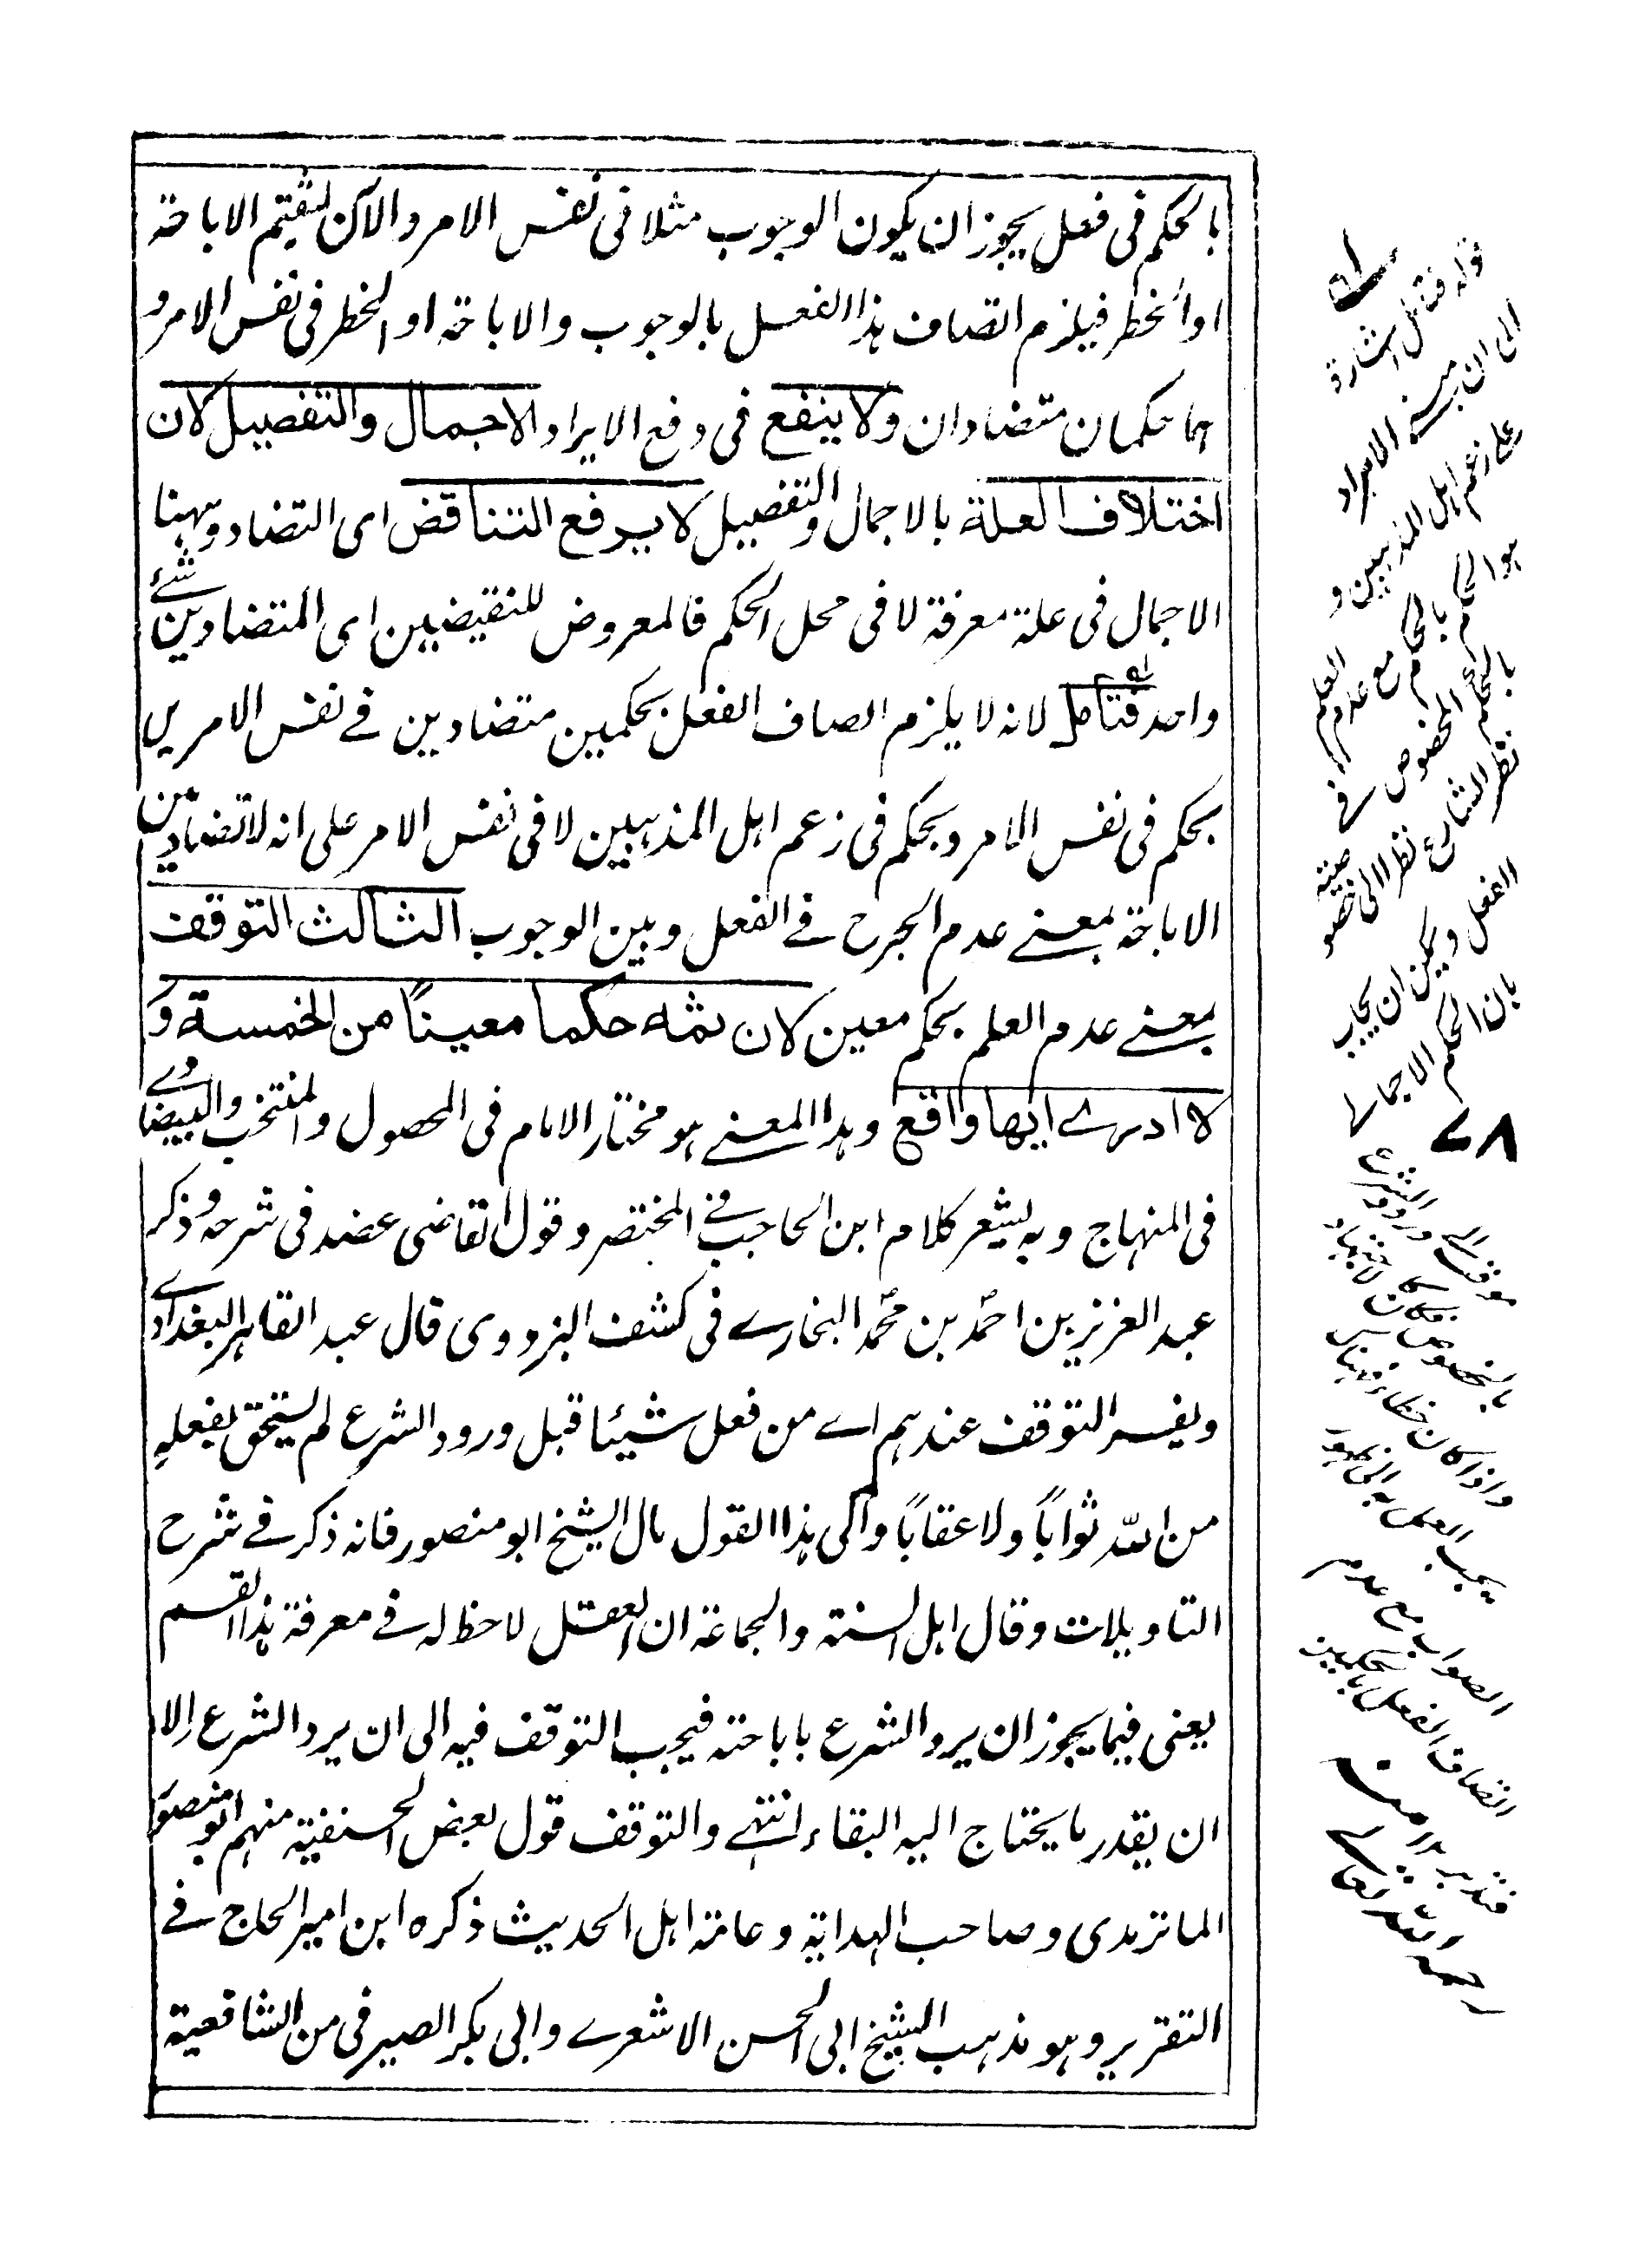 بالحكم فى فعل يجوز ان يكون الوجوب مثلا فى نفس الامر والآن لشقيتم الاباحة
او الخطر فيلزم اتصاف هذا الفعل بالوجوب والاباحة او الخطر فى نفس الامر و
هما حكمان متضادان ولا ينفع فى دفع الايراد الاجمال والتفصيل لان
اختلاف العلة بالاجمال والتفصيل لا يرفع التناقض اى التضاد وههنا
الاجمال فى علة معرفة لا فى محل الحكم فالمعروض للنقيضين اى المتضادين شئ
واحد فتامل لانه لا يلزم اتصاف الفعل بحكمين متضادين فے نفس الامر بل
بحكم فى نفس الامر وبحكم فى زعم اهل المذهبين لا فى نفس الامر على انه لا تضاد بين
الاباحة بمعنے عدم الحرج فے الفعل وبين الوجوب الثالث التوقف
بمعنے عدم العلم بحكم معين لان ثمه حكما معينًا من الخمسة و
لا ادرے ايها واقع وهذا المعنے هو مختار الامام فى المحصول والمنتخب والبيضاوے
فى المنهاج وبه يشعر كلام ابن الحاجب فے المختصر وقول القاضى عضد فى شرحه وذكر
عبد العزيز بن احمد بن محمد البخارے فى كشف البزدوى قال عبد القاهر البغدادے
ويفسر التوقف عندهم اے من فعل شيئا قبل ورود الشرع لم يستحق بفعله
من الله ثوابًا ولا عقابًا والى هذا القول مال الشيخ ابو منصور فانه ذكر فے شرح
التاويلات وقال اهل السنة والجماعة ان العقل لا حظ له فے معرفة هذا القسم
يعنى فيما يجوز ان يرد الشرع باباحته فيجب التوقف فيه الى ان يرد الشرع الا
ان يقدر ما يحتاج اليه البقاء انتهے والتوقف قول بعض الحنفية منهم ابو منصور
الماتريدى وصاحب الهداية وعامة اهل الحديث ذكره ابن امير الحاج فے
التقرير وهو مذهب الشيخ ابى الحسن الاشعرے وابى بكر الصيرفى من الشافعية
قوله فتامل اشارة
الى ان مبنے الايراد
علے زعم اهل المذهبين و
هو الحكم
بالحكم المخصوص فے
نظر الشارع نظرا الى خصوصية
الفعل ويمكن ان يجاب
بان الحكم الاجمالے
٧٨
موقت الے ورود الشرع
بالخصوص
واذا كان خطاء
يجب العمل به الى ظهور
الصواب مع عدم
اتصاف الفعل بالحكمين
فتدبر ١٢ منه
رحمه الله تعالے